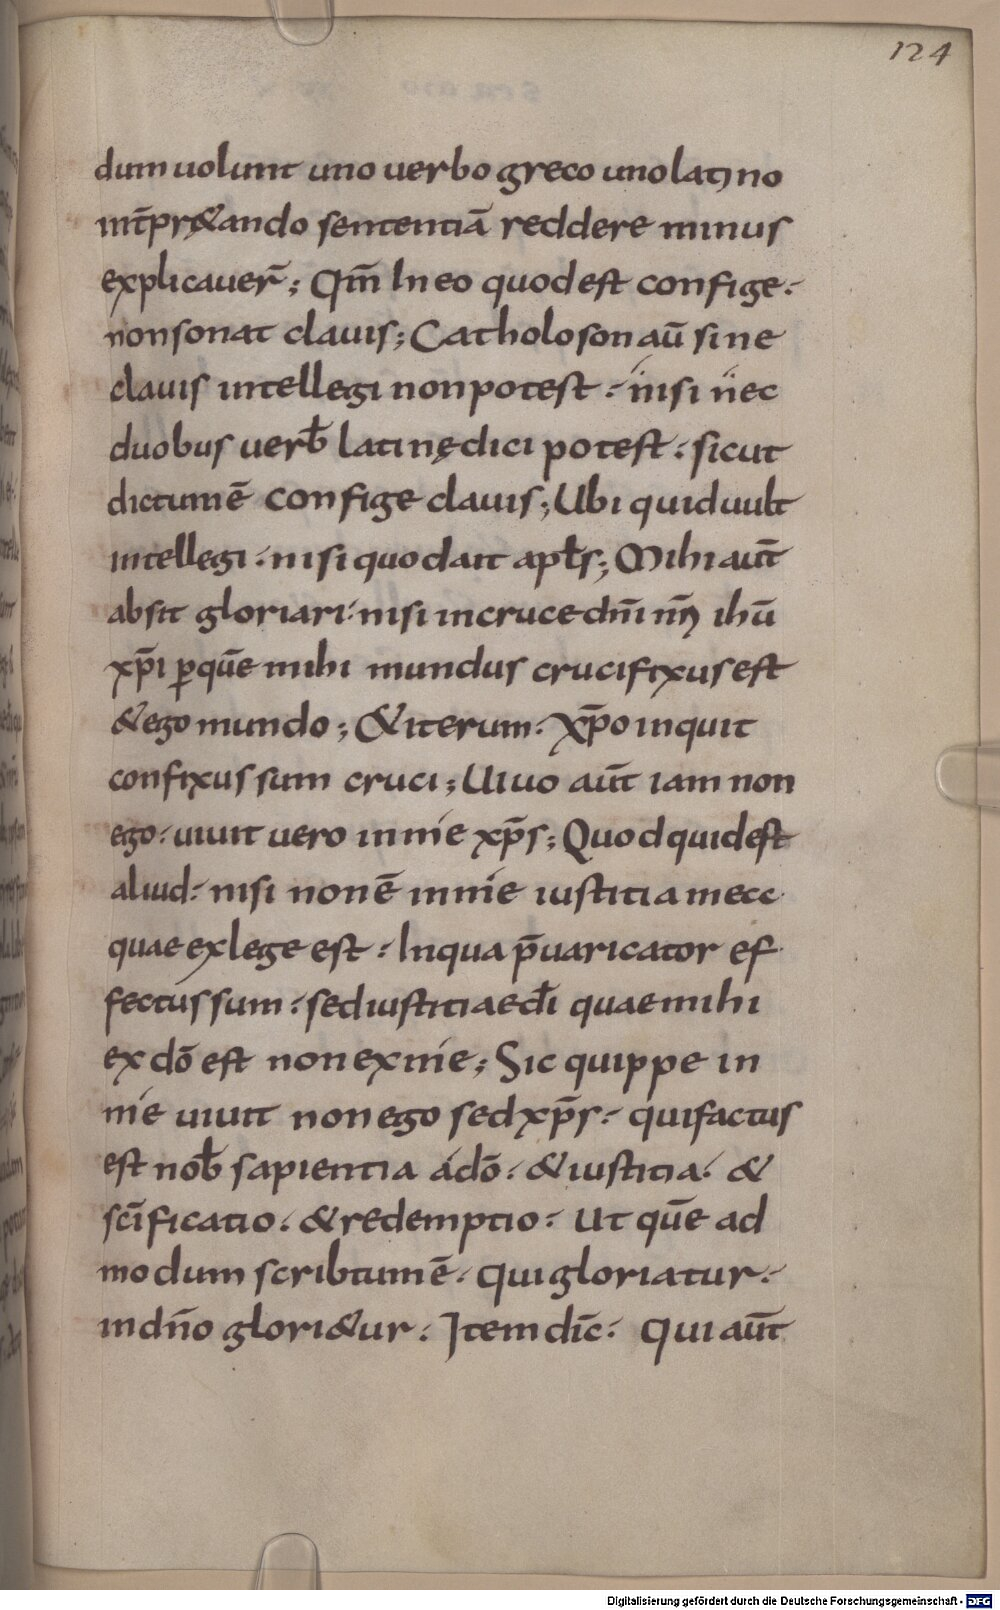 124
dum uolunt uno uerbo greco uno latino
int̄pr&ando sententiā reddere minus
explicauer̄; Qm̄ In eo quod est confige·
non sonat clauis; Catholoson aū sine
clauis intellegi non potest· nisi nec
duobus verb̄ latinę dici potest· sicut
dictum ē confige clauis; Ubi quid uult
intellegi· nisi quod ait apłs; Mihi aūt
absit gloriari· nisi in cruce dn̄i nr̄i ihū
xp̄i ꝑ quē mihi mundus crucifixus est
& ego mundo; & iterum· Xp̄o inquit
confixus sum cruci; Uiuo aūt iam non
ego· uiuit uero in me xp̄s; Quod quid est
aliud· nisi non ē in me iustitia mea
quae ex lege est· In qua p̄uaricator ef
fectus sum· sed iustitia e dī quae mihi
ex dō est non ex me; Sic quippe in
me uiuit non ego sed xp̄s· qui factus
est nob̄ sapientia a dō· & iustitia· &
sc̄ificatio· & redemptio· Ut quē ad
modum scribtum ē· Qui gloriatur·
in dn̄o glori&ur· Item dic̄· Qui aūt
Digitalisierung gefördert durch die Deutsche Forschungsgemeinschaft - DFG